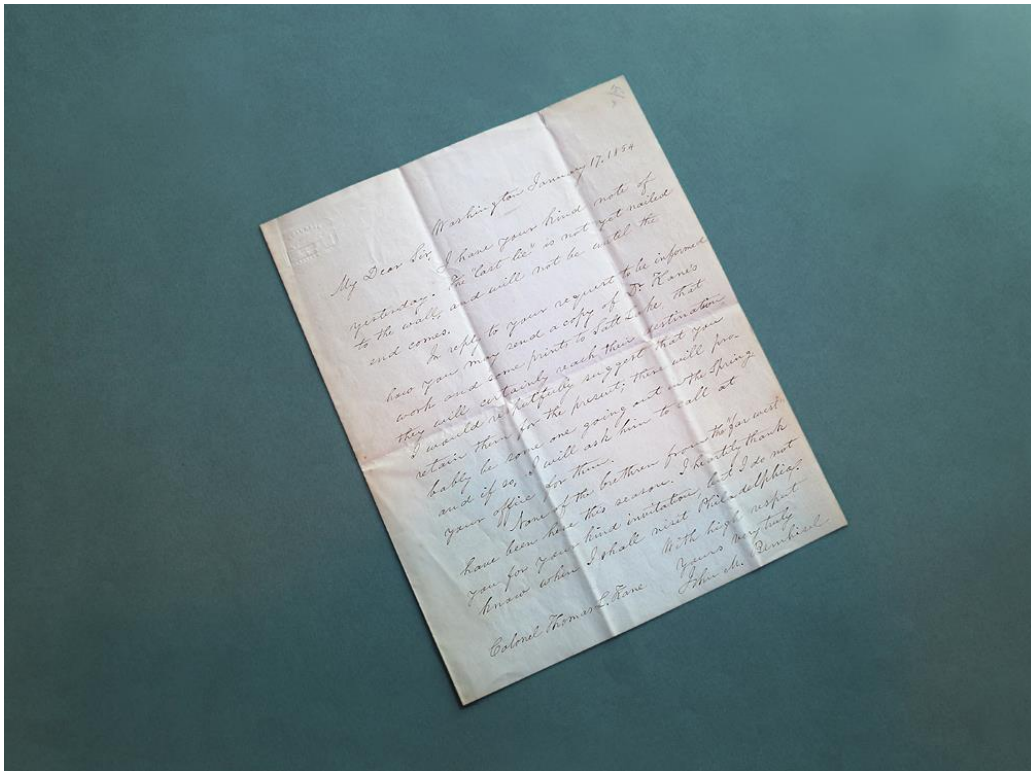 Washington January 17, 1854
My Dear Sir, I have your kind note of
yesterday. The "last lie" is not yet nailed
to the wall, and will not be until the
end comes.
In reply to your request to be informed
how you may send a copy of Dr. Kane's
work and some prints to Salt Lake, that
they will certainly reach their destination,
I would respectfully suggest that you
retain them for the present; there will pro-
bably be some one going out in the Spring
and if so, I will ask him to call at
your office for them.
None of the brethren from the "far west"
have been here this season. I heartily thank
you for your kind invitation, but I do not
know when I shall visit Philadelphia.
With high respect
Yours very truly
John M. Bernhisel
Colonel Thomas L. Kane